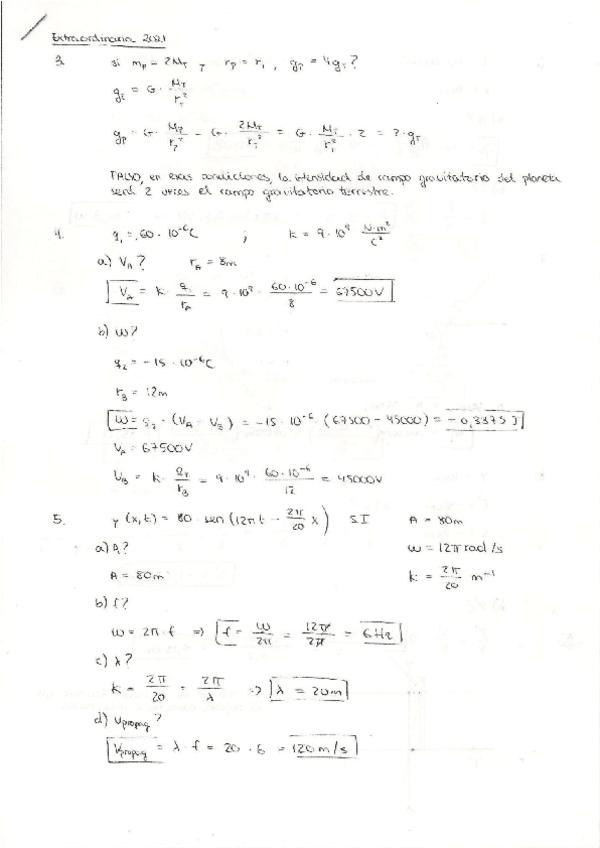 Extraordinaria 2021
3. Si mp = 2MT, rp = rT, gp = 4gT?
gT = G · MT/rT²
gp = G · Mp/rp² = G · 2MT/rT² = G · MT/rT² · 2 = 2 · gT
FALSO, en esas condiciones, la intensidad de campo gravitatorio del planeta
será 2 veces el campo gravitatorio terrestre.
4. q1 = 60 · 10⁻⁶C ; k = 9 · 10⁹ N·m²/C²
a) VA? rA = 8m
VA = k · q1/rA = 9 · 10⁹ · 60·10⁻⁶/8 = 67500V
b) W?
q2 = -15 · 10⁻⁶C
rB = 12m
W = q2 · (VA - VB) = -15 · 10⁻⁶ · (67500 - 45000) = -0,3375 J
VA = 67500V
VB = k · q1/rB = 9 · 10⁹ · 60·10⁻⁶/12 = 45000V
5. y(x,t) = 80 · sen(12πt - 2π/20 x) S.I A = 80m
a) A? ω = 12π rad/s
A = 80m k = 2π/20 m⁻¹
b) f?
ω = 2π · f => f = ω/2π = 12π/2π = 6Hz
c) λ?
k = 2π/20 = 2π/λ => λ = 20m
d) Vpropag?
Vpropag = λ · f = 20 · 6 = 120m/s